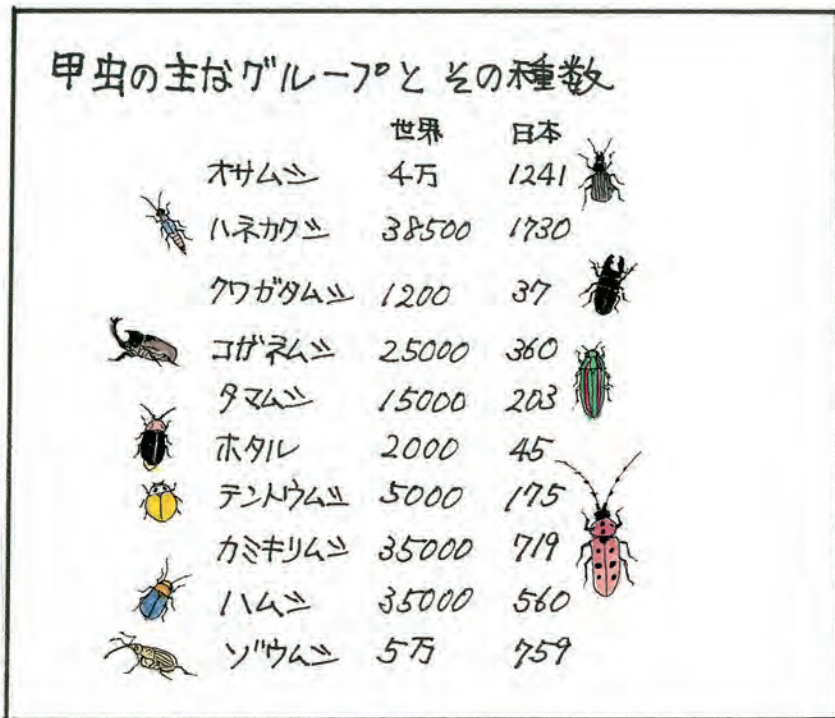 甲虫の主なグループとその種数
世界 日本
オサムシ 4万 1241
ハネカクシ 38500 1730
クワガタムシ 1200 37
コガネムシ 25000 360
タマムシ 15000 203
ホタル 2000 45
テントウムシ 5000 175
カミキリムシ 35000 719
ハムシ 35000 560
ゾウムシ 5万 759